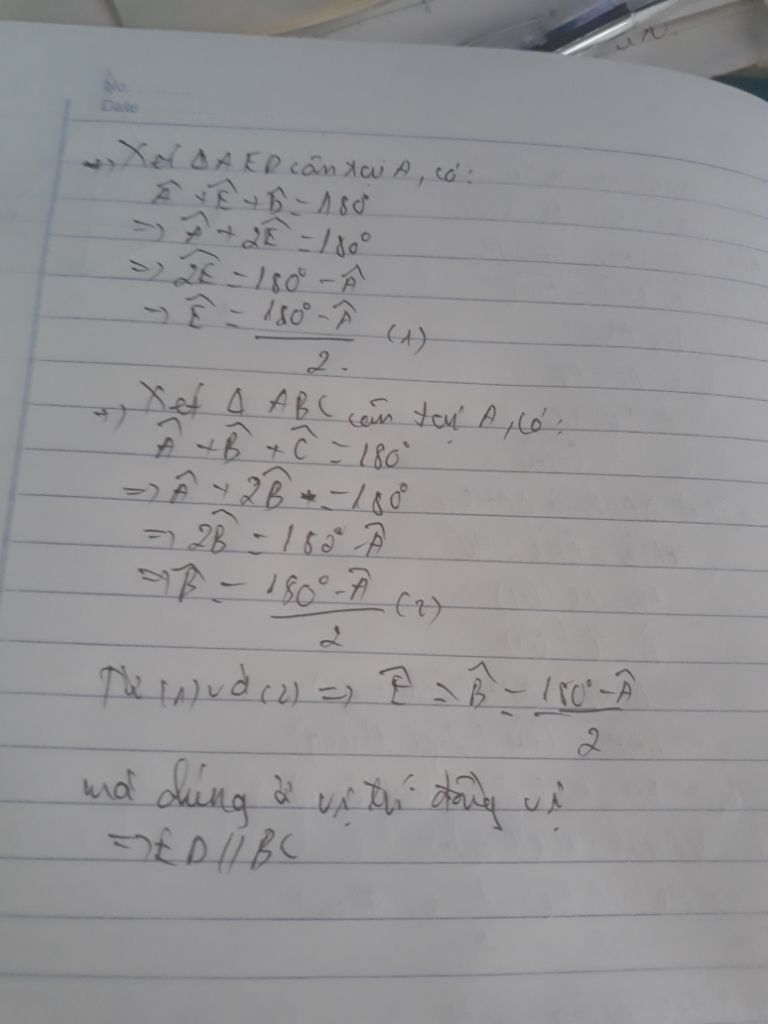 No.
Date
+) Xét Δ AED cân tại A, có:
Â + Ê + B̂ = 180°
=> Â + 2Ê = 180°
=> 2Ê = 180° - Â
=> Ê = (180° - Â)/2. (1)
+) Xét Δ ABC cân tại A, có:
Â + B̂ + Ĉ = 180°
=> Â + 2B̂ = 180°
=> 2B̂ = 180° - Â
=> B̂ = (180° - Â)/2 (2)
Từ (1) và (2) => Ê = B̂ = (180° - Â)/2
mà chúng ở vị trí đồng vị
=> ED // BC